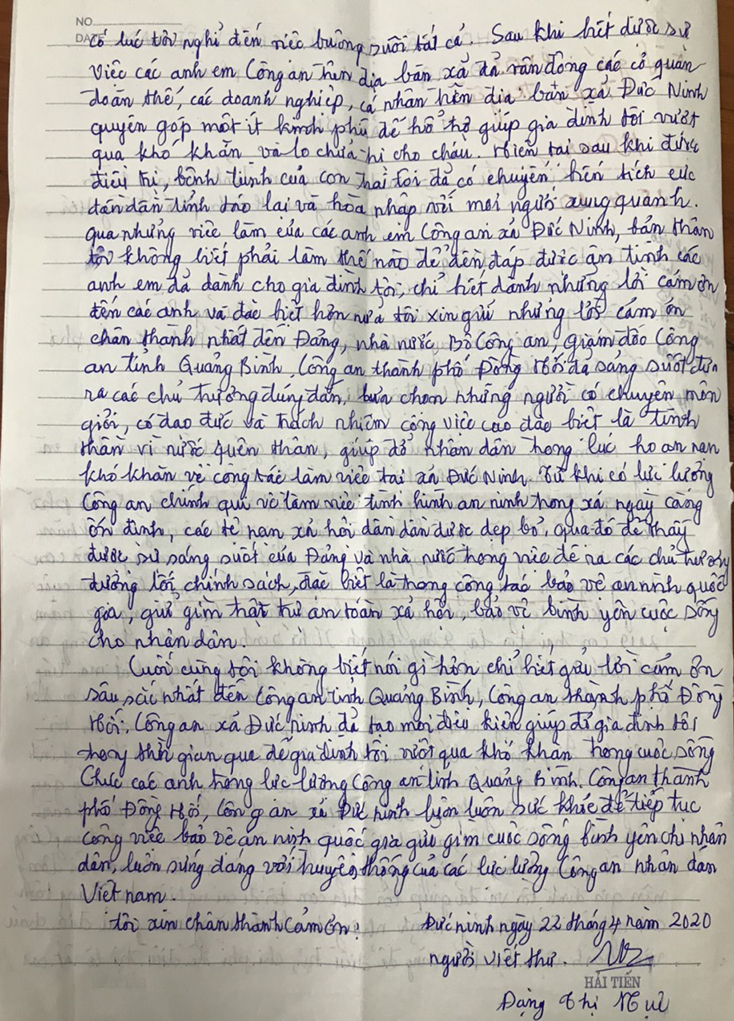 NO
DATE
có lúc tôi nghỉ đến việc buông suôi tất cả. Sau khi biết được sự
việc các anh em Công an trên địa bàn xã đã vận động các cơ quan
đoàn thể, các doanh nghiệp, cá nhân trên địa bàn xã Đức Ninh
quyên góp một ít kinh phí để hổ trợ giúp gia đình tôi vượt
qua khó khăn và lo chửa trị cho cháu. Hiện tại sau khi được
điều trị, bệnh tình của con trai tôi đã có chuyển biến tích cực
dần dần tỉnh táo lại và hòa nhập với mọi người xung quanh.
Qua những việc làm của các anh em Công an xã Đức Ninh, bản thân
tôi không biết phải làm thế nào để đền đáp được ân tình các
anh em đã dành cho gia đình tôi, chỉ biết dành những lời cám ơn
đến các anh và đặc biệt hơn nửa tôi xin gửi những lời cám ơn
chân thành nhất đến Đảng, nhà nước, Bộ Công an, giám đốc Công
an tỉnh Quảng Bình, Công an thành phố Đồng Hới đã sáng suốt đưa
ra các chủ trương đúng đắn, lựa chọn những người có chuyên môn
giỏi, có đạo đức và trách nhiệm công việc cao đặc biệt là tinh
thần vì nước quên thân, giúp đở nhân dân trong lúc hoạn nạn
khó khăn về công tác làm việc tại xã Đức Ninh. Từ khi có lực lượng
Công an chính qui về làm việc tình hình an ninh trong xã ngày càng
ổn định, các tệ nạn xã hội dần dần được dẹp bỏ, qua đó để thấy
được sự sáng suốt của Đảng và nhà nước trong việc đề ra các chủ trương
đường lối, chính sách, đặc biệt là trong công tác bảo vệ an ninh quốc
gia, giử gìn trật tự an toàn xã hội, bảo vệ bình yên cuộc sống
cho nhân dân.
Cuối cùng tôi không biết nói gì hơn chỉ biết gửi lời cám ơn
sâu sắc nhất đến Công an tỉnh Quảng Bình, Công an thành phố Đồng
Hới, Công an xã Đức ninh đã tạo mọi điều kiện giúp đỡ gia đình tôi
trong thời gian qua để gia đình tôi vượt qua khó khăn trong cuộc sống
Chúc các anh trong lực lượng Công an tỉnh Quảng Bình. Công an thành
phố Đồng Hới, Công an xã Đức ninh luôn luôn sức khỏe để tiếp tục
công việc bảo vệ an ninh quốc gia giử gìn cuộc sống bình yên cho nhân
dân, luôn xứng đáng với truyền thống của các lực lượng Công an nhân dân
Việt nam.
Tôi xin chân thành cảm ơn!
Đức ninh ngày 22 tháng 4 năm 2020
người viết thư.
HẢI TIẾN
Đặng Thị Mụi